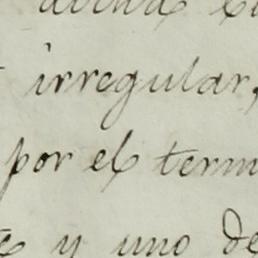 irregular,
por el term
y uno de